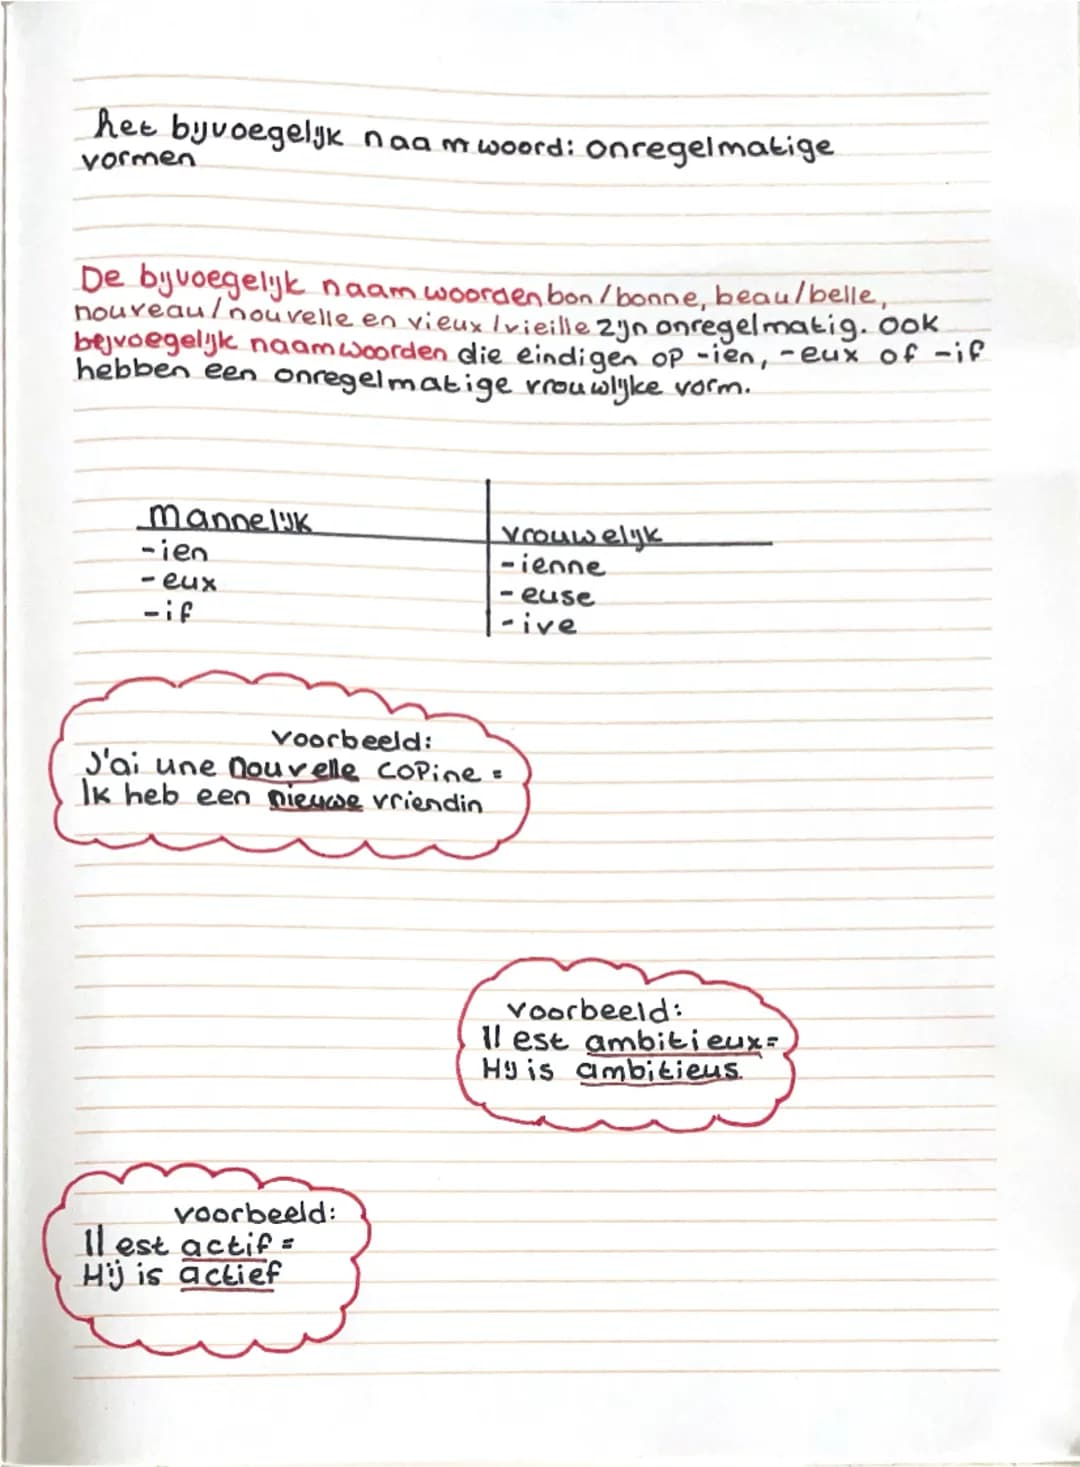 het bijvoegelijk naamwoord: onregelmatige
vormen
De bijvoegelijk naamwoorden bon/bonne, beau/belle,
nouveau/nouvelle en vieux/vieille zijn onregelmatig. Ook
bejvoegelijk naamwoorden die eindigen op -ien, -eux of -if
hebben een onregelmatige vrouwlijke vorm.
mannelijk
-ien
-eux
-if
vrouwelijk
-ienne
-euse
-ive
voorbeeld:
J'ai une nouvelle copine =
Ik heb een nieuwe vriendin
voorbeeld:
Il est ambitieux =
Hij is ambitieus.
voorbeeld:
Il est actif =
Hij is actief